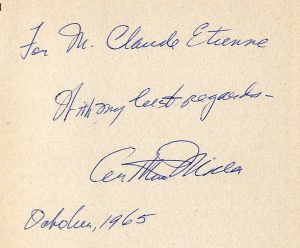 For M. Claude Etienne
With my best regards-
Arthur Miller
October, 1965